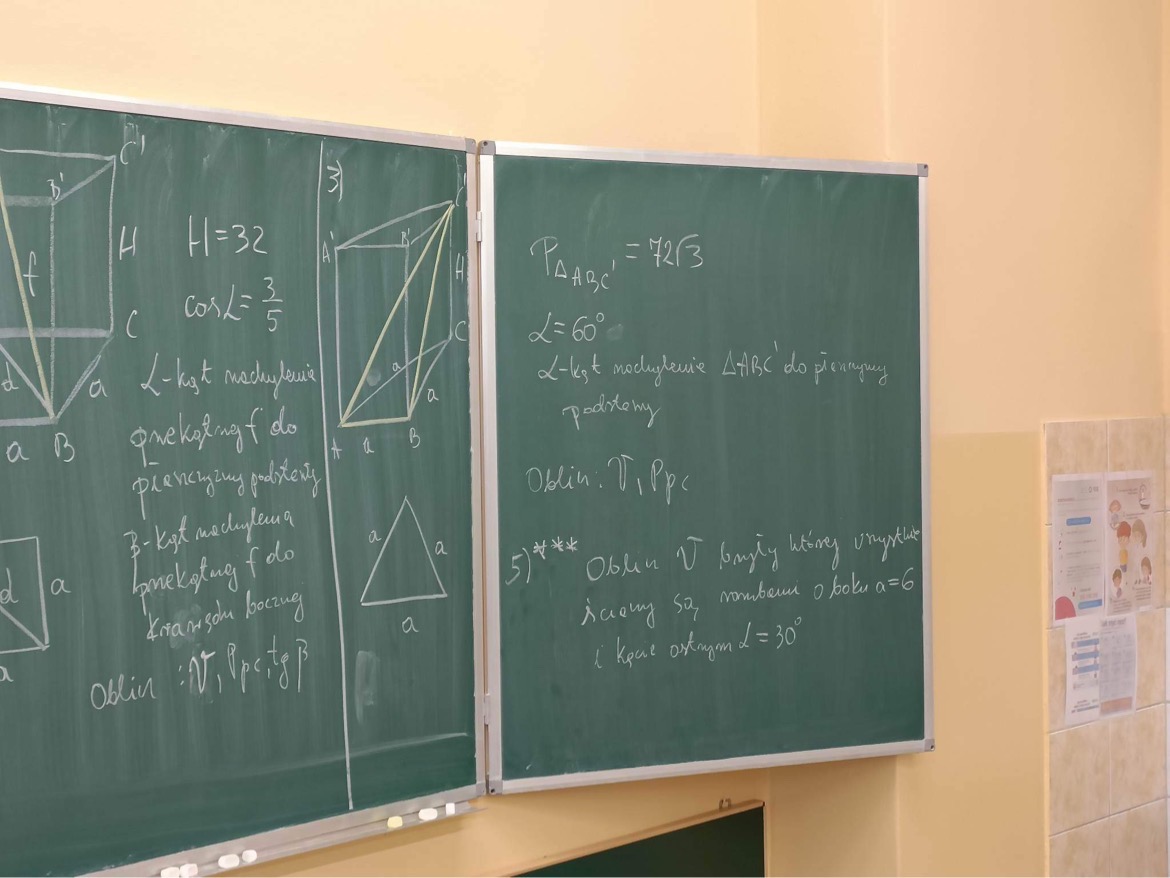 C'
B'
H
f
C
d
a
a B
H=32
cosα= 3/5
α-kąt nachylenia
przekątnej f do
płaszczyzny podstawy
β-kąt nachylenia
przekątnej f do
krawędzi bocznej
Oblicz : V, Ppc, tg β
d
a
a
3)
C'
A'
B'
H
C
a
a
A a B
a a
a
P△ABC' = 72√3
α=60°
α-kąt nachylenia △ABC' do płaszczyzny
podstawy
Oblicz: V, Ppc
5)*** Oblicz V bryły której wszystkie
ściany są rombami o boku a=6
i kącie ostrym α=30°